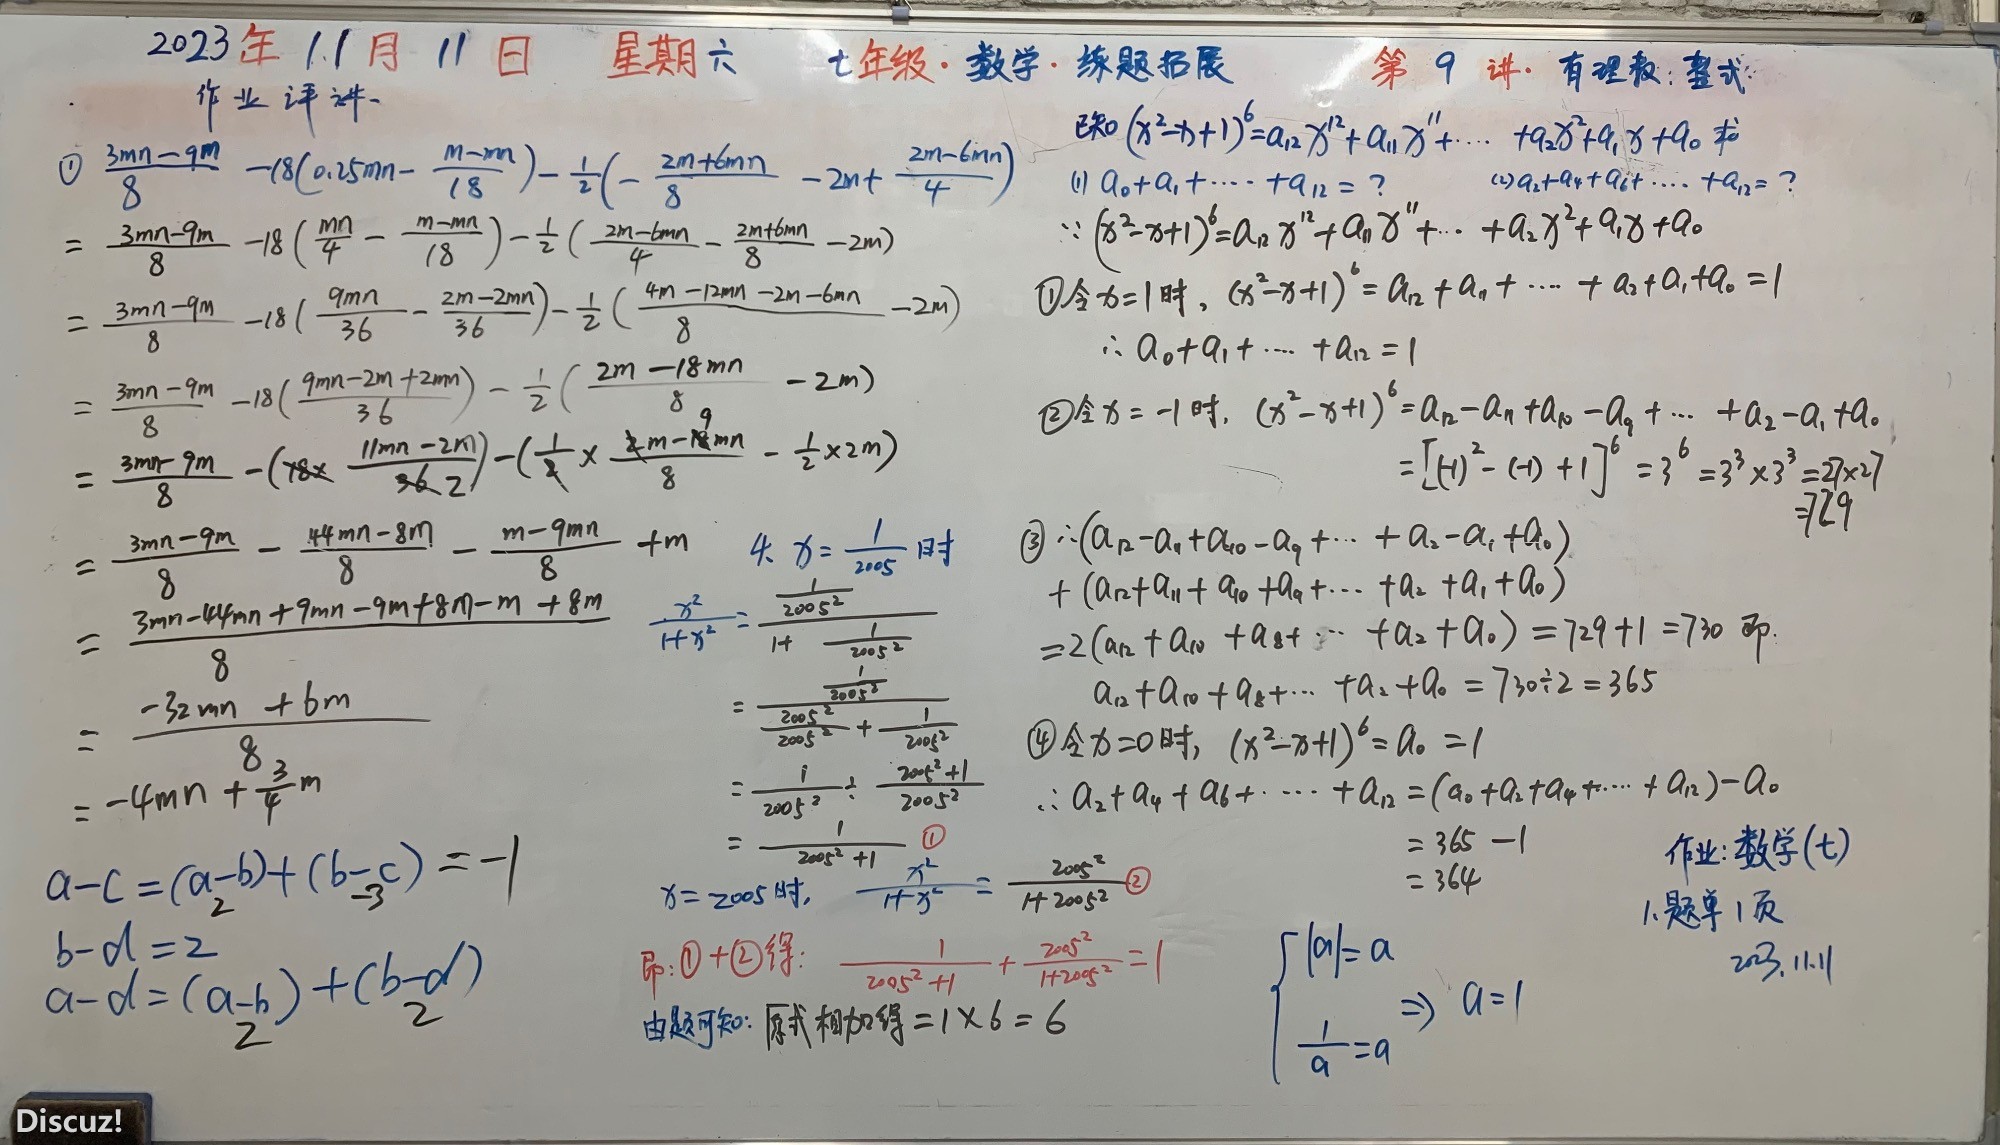 2023年11月11日 星期六 七年级·数学·练题拓展 第9讲·有理数:整式
作业评讲
① \frac{3mn-9m}{8} -18(0.25mn-\frac{m-mn}{18})-\frac{1}{2}(-\frac{2m+6mn}{8}-2m+\frac{2m-6mn}{4})
= \frac{3mn-9m}{8} -18(\frac{mn}{4}-\frac{m-mn}{18})-\frac{1}{2}(\frac{2m-6mn}{4}-\frac{2m+6mn}{8}-2m)
= \frac{3mn-9m}{8} -18(\frac{9mn}{36}-\frac{2m-2mn}{36})-\frac{1}{2}(\frac{4m-12mn-2m-6mn}{8}-2m)
= \frac{3mn-9m}{8} -18(\frac{9mn-2m+2mn}{36})-\frac{1}{2}(\frac{2m-18mn}{8}-2m)
= \frac{3mn-9m}{8} -(18×\frac{11mn-2m}{36 2})-(\frac{1}{2}×\frac{2m-18 9mn}{8}-\frac{1}{2}×2m)
= \frac{3mn-9m}{8} - \frac{44mn-8m}{8} - \frac{m-9mn}{8} +m
= \frac{3mn-44mn+9mn-9m+8m-m+8m}{8}
= \frac{-32mn+6m}{8}
= -4mn+\frac{3}{4}m
a-c=(a-b)+(b-c)=-1
2 -3
b-d=2
a-d=(a-b)+(b-d)
2 2
4. x=\frac{1}{2005}时
\frac{x²}{1+x²}=\frac{\frac{1}{2005²}}{1+\frac{1}{2005²}}
=\frac{\frac{1}{2005²}}{\frac{2005²}{2005²}+\frac{1}{2005²}}
=\frac{1}{2005²}÷\frac{2005²+1}{2005²}
=\frac{1}{2005²+1} ①
x=2005时, \frac{x²}{1+x²}=\frac{2005²}{1+2005²} ②
即:①+②得: \frac{1}{2005²+1}+\frac{2005²}{1+2005²}=1
由题可知:原式相加得=1×6=6
已知(x²-x+1)⁶=a₁₂x¹²+a₁₁x¹¹+……+a₂x²+a₁x+a₀ 求
(1) a₀+a₁+……+a₁₂=? (2) a₂+a₄+a₆+……+a₁₂=?
∵(x²-x+1)⁶=a₁₂x¹²+a₁₁x¹¹+…+a₂x²+a₁x+a₀
①令x=1时, (x²-x+1)⁶=a₁₂+a₁₁+……+a₂+a₁+a₀=1
∴a₀+a₁+……+a₁₂=1
②令x=-1时, (x²-x+1)⁶=a₁₂-a₁₁+a₁₀-a₉+…+a₂-a₁+a₀
=[(-1)²-(-1)+1]⁶=3⁶=3³×3³=27×27
=729
③∴(a₁₂-a₁₁+a₁₀-a₉+…+a₂-a₁+a₀)
+(a₁₂+a₁₁+a₁₀+a₉+…+a₂+a₁+a₀)
=2(a₁₂+a₁₀+a₈+…+a₂+a₀)=729+1=730 即:
a₁₂+a₁₀+a₈+…+a₂+a₀=730÷2=365
④令x=0时, (x²-x+1)⁶=a₀=1
∴a₂+a₄+a₆+……+a₁₂=(a₀+a₂+a₄+……+a₁₂)-a₀
=365-1
=364
{|a|=a
\frac{1}{a}=a
⇒ a=1
作业:数学(七)
1.题单1页
2023.11.11
Discuz!